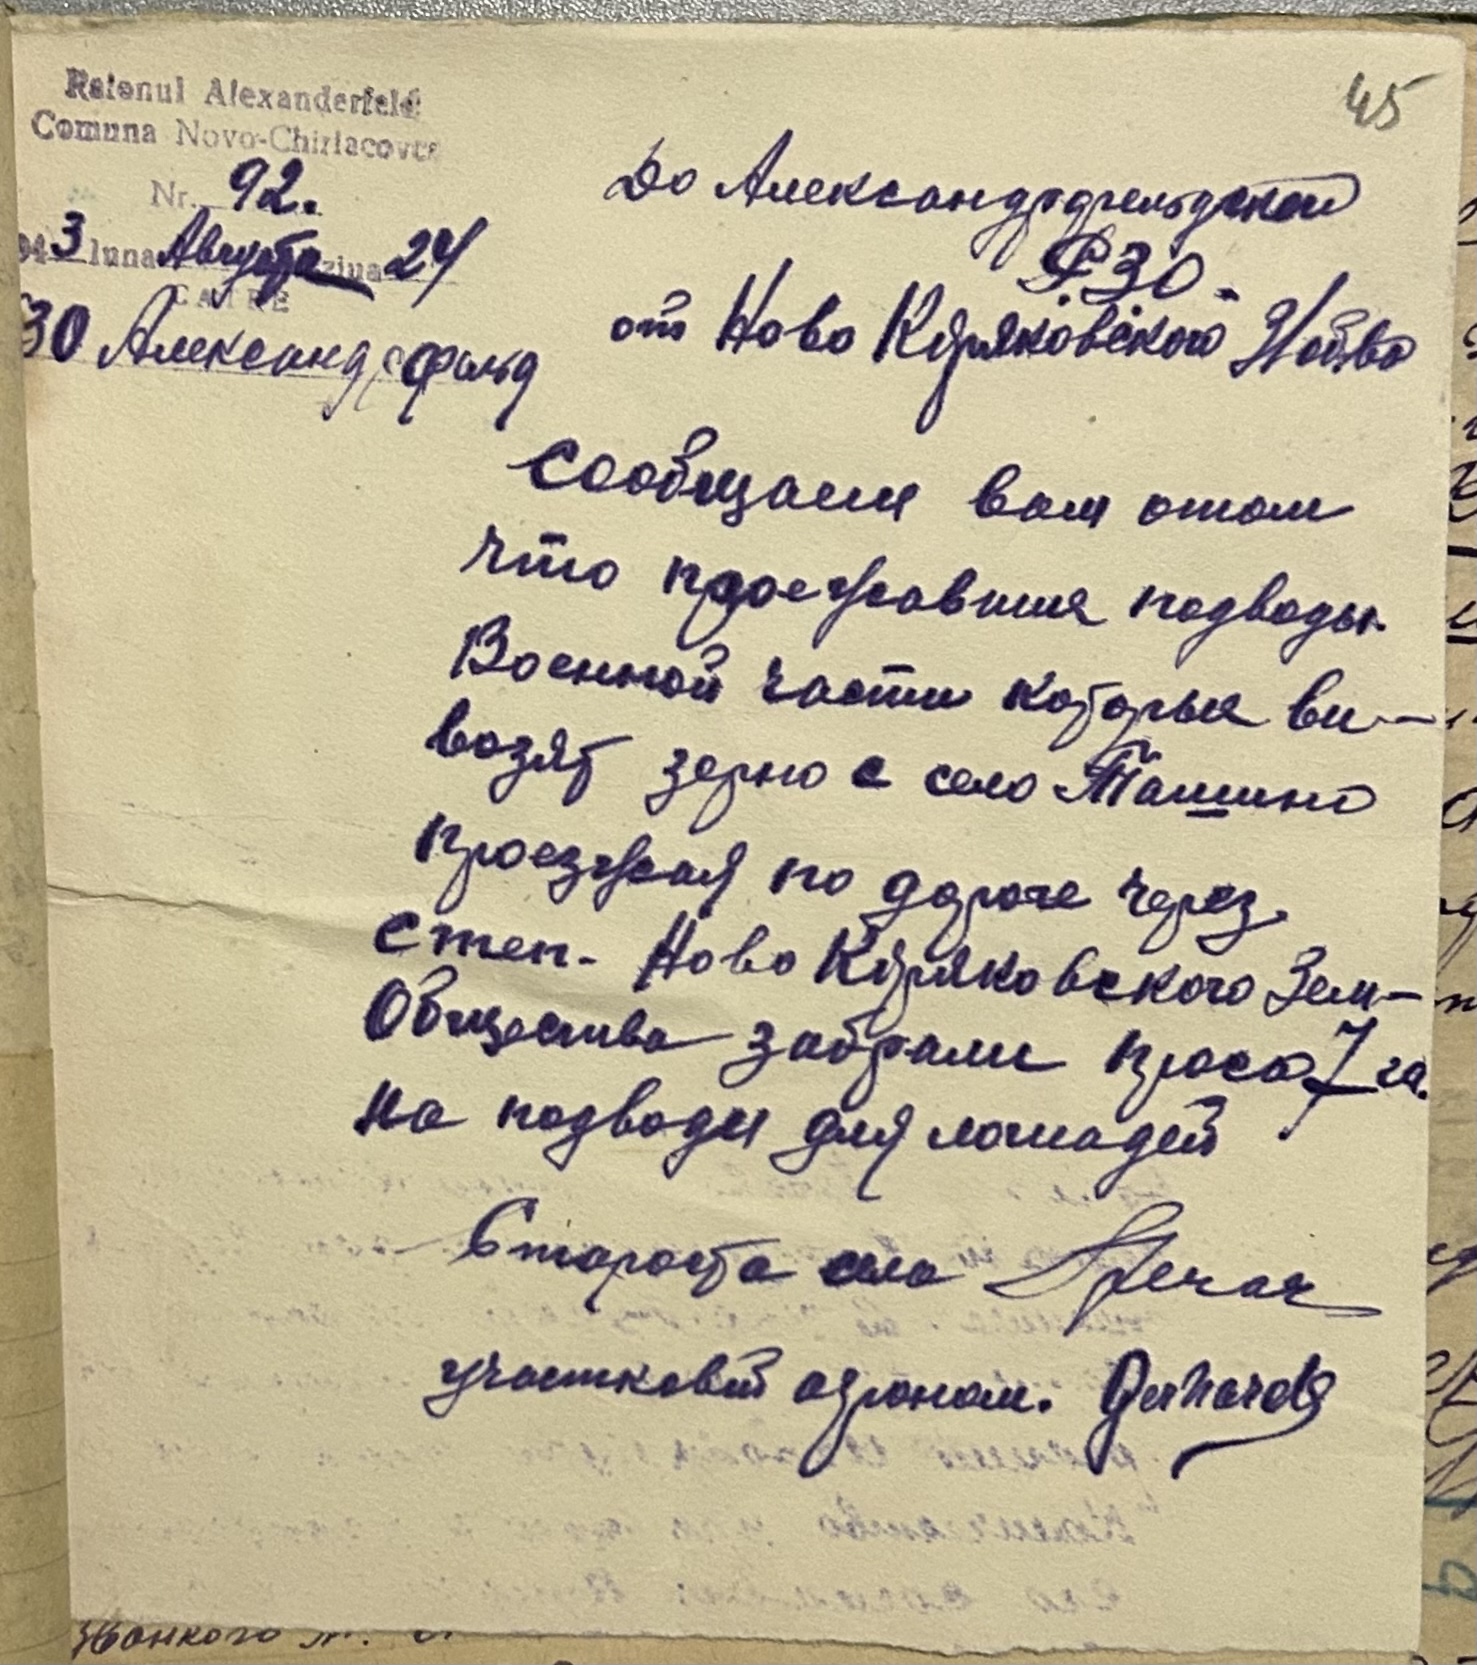 45
Raionul Alexanderfeld
Comuna Novo-Chiriacovca
Nr. 92.
1943 luna Августа ziua 24
CATRE
ЗО Александрфельд
До Александрфельдской
РЗО.
от Ново Киряковского
Сообщаем вам отом
что проежавшие подводы
Военной части которые ви-
возят зерно с село Ташино
проезжая по дороге через
степ- Ново Киряковского Зем-
Общества забрали просо 7 га.
на подводи для лошадей
Староста села
участковий агроном. Gerhards